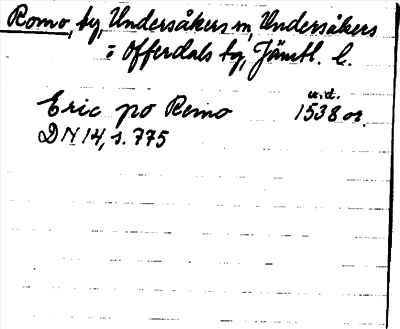 Romo, by, Undersåkers sn, Undersåkers
o Offerdals tg, Jämtl. l.
u.d.
Eric po Romo 1538 or.
DN 14, s. 775